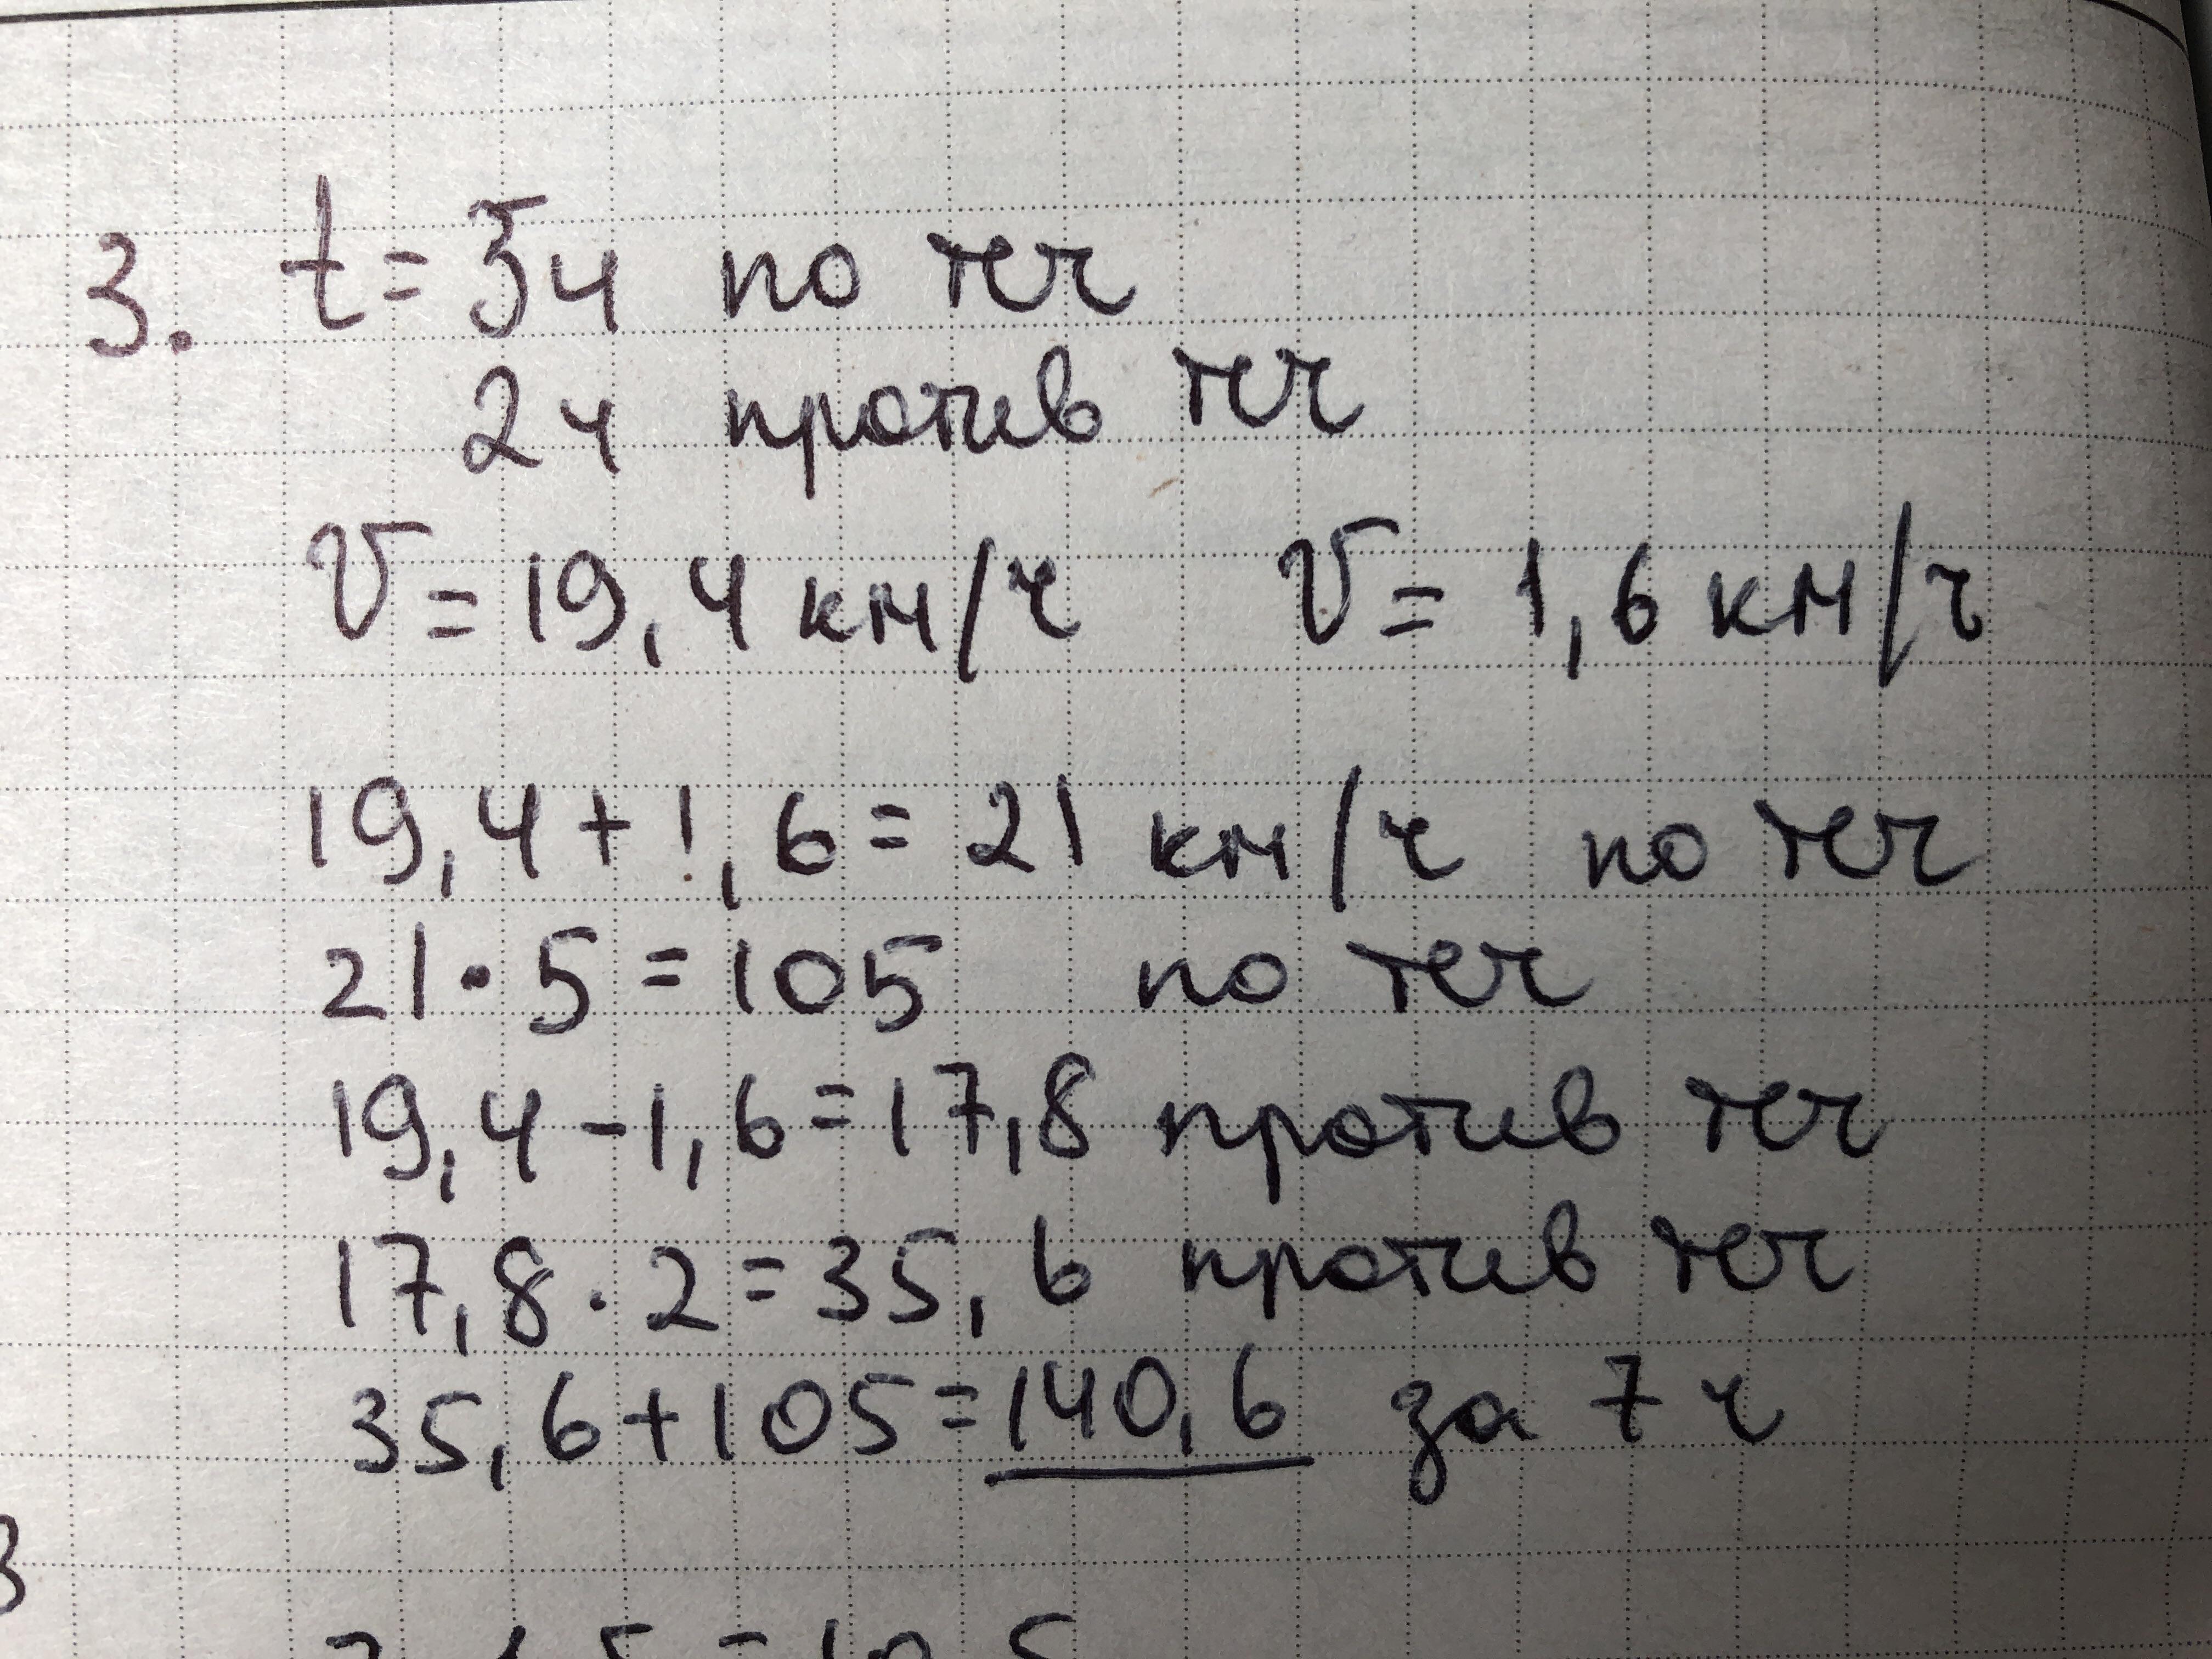 3. t = 5ч по теч
2ч против теч
V = 19,4 км/ч V = 1,6 км/ч
19,4 + 1,6 = 21 км/ч по теч
21 · 5 = 105 по теч
19,4 - 1,6 = 17,8 против теч
17,8 · 2 = 35,6 против теч
35,6 + 105 = 140,6 за 7 ч